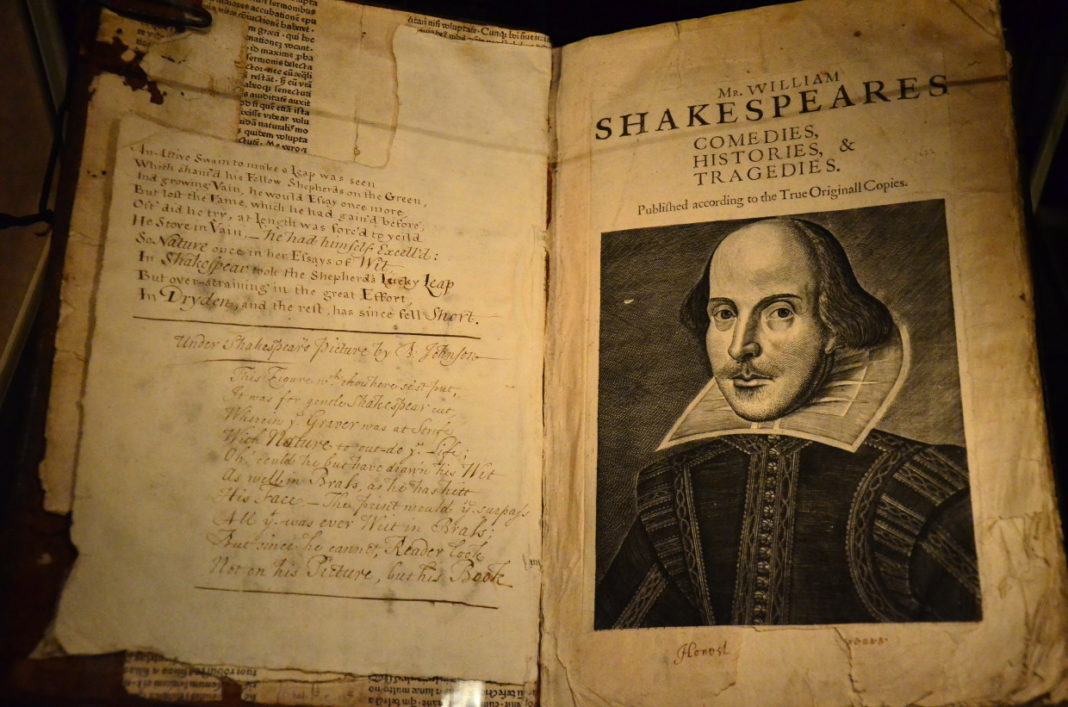 sermonibus
maiores accubationē epu
ctāri nisi voluptate. Cunqꝫ
An Active Swain to make a Leap was seen
Which sham'd his Fellow Shepherds on the Green,
And growing Vain, he would Essay once more
But lost the Fame, which he had gain'd before;
Oft' did he try, at Length was forc'd to yeild
He Strove in Vain,— he had himself Excell'd:
So Nature once in her Essays of Wit,
In Shakespear took the Shepherd's Lucky Leap
But over-straining in the great Effort,
In Dryden, and the rest, has since fell Short.
Under Shakespears Picture by B. Johnson
This Figure wch. thou here seest put,
It was for gentle Shakespear cut,
Wherein ye. Graver was at Strife
With Nature to out-do ye. Life;
Oh! could he but have drawn his Wit
As well in Brass, as he has hitt
His Face — The print would yn. surpass
All yt. was ever Writ in Brass;
But since he cannot, Reader look
Not on his Picture, but his Book
Mr. WILLIAM
SHAKESPEARES
COMEDIES,
HISTORIES, &
TRAGEDIES.
Publiſhed according to the True Originall Copies.